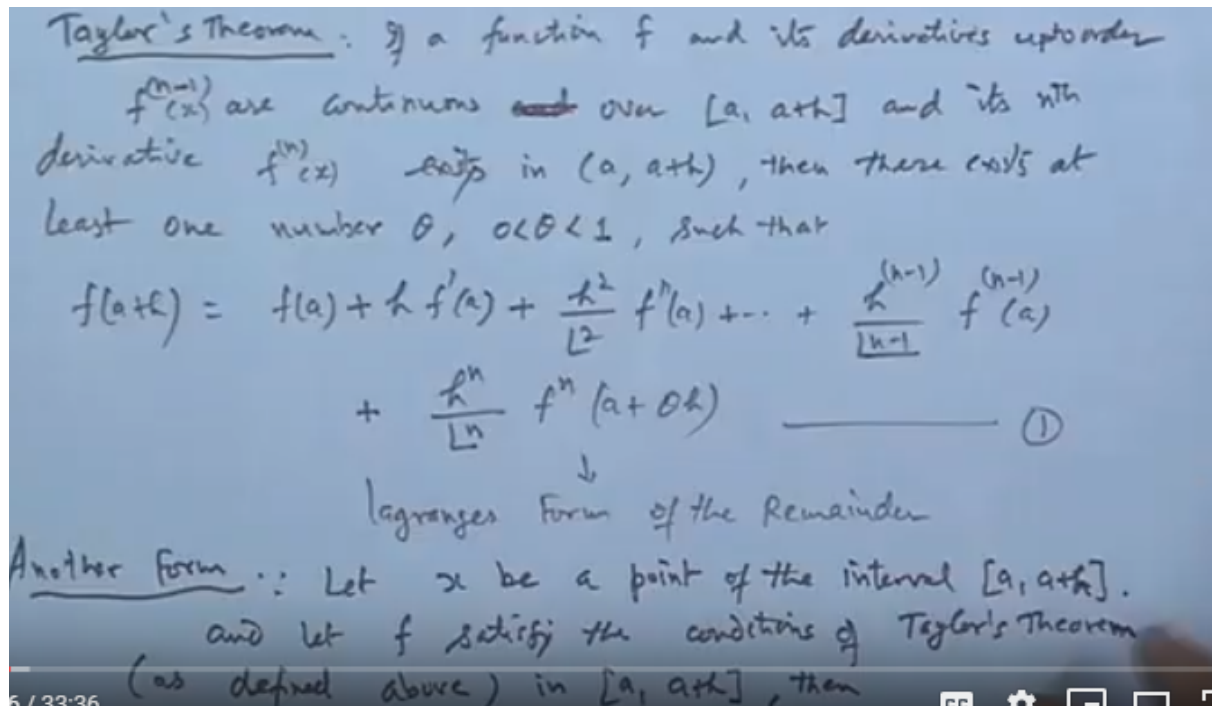 Taylor's Theorem : If a function f and its derivatives upto order
f^(n-1)(x) are continuous over [a, a+h] and its nth
derivative f^(n)(x) exists in (a, a+h), then there exists at
least one number θ, 0<θ<1, such that
f(a+h) = f(a) + h f'(a) + h²/⌊2 f''(a) + --- + h^(n-1)/⌊n-1 f^(n-1)(a)
+ h^n/⌊n f^n (a+θh) ——— ①
↓
lagranges Form of the Remainder
Another Form :: Let x be a point of the interval [a, a+h].
and let f satisfy the conditions of Taylor's Theorem
(as defined above) in [a, a+h], then
6 / 33:36
CC